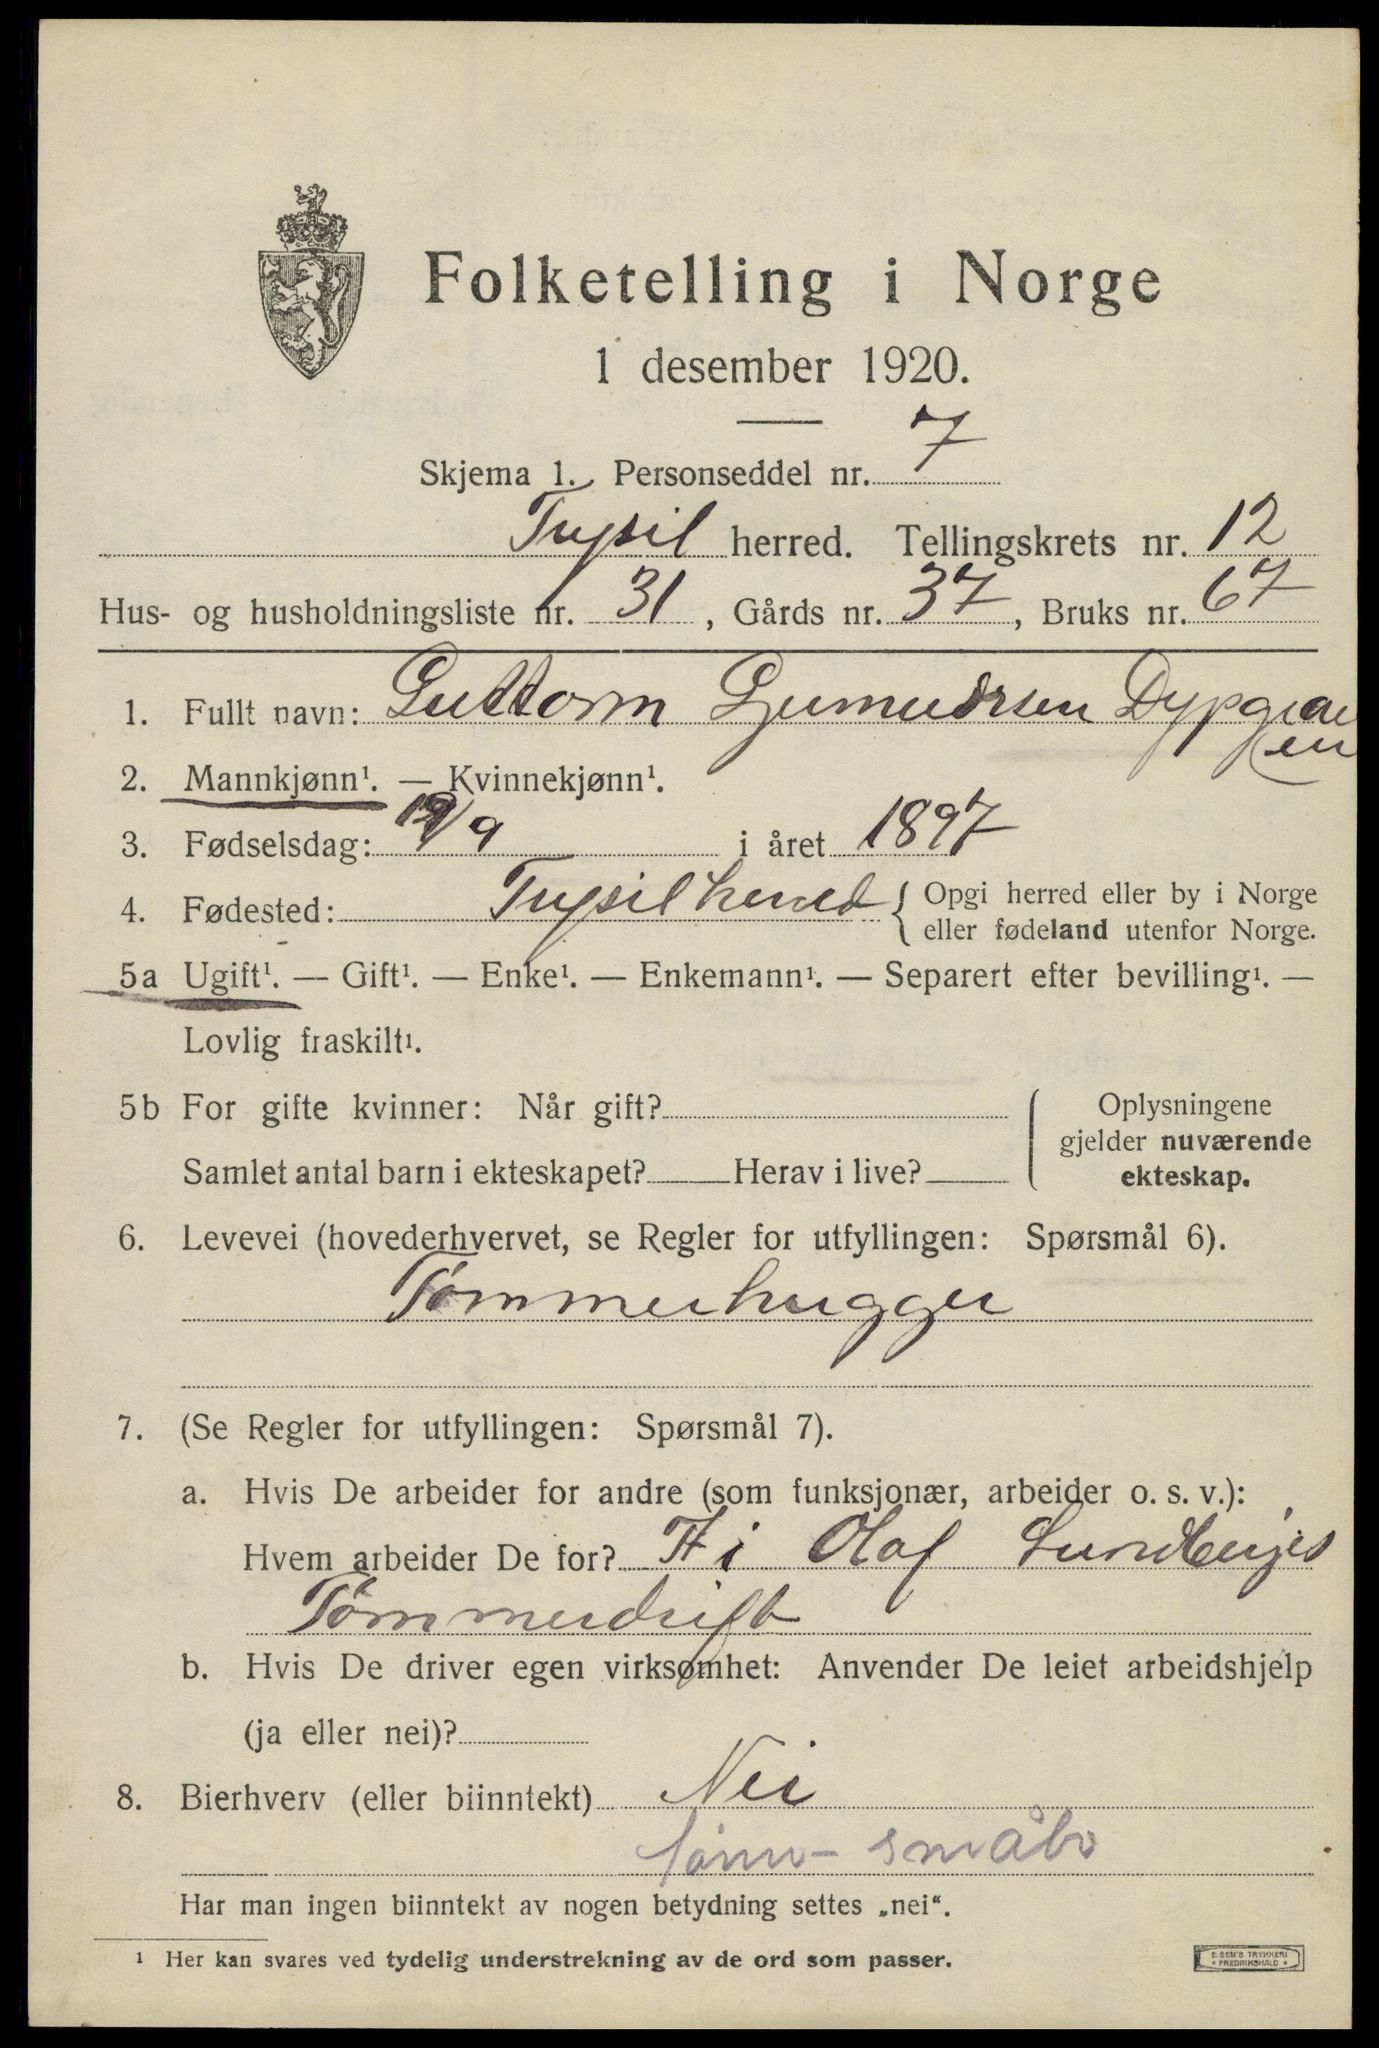 Folketelling i Norge
1 desember 1920.
Skjema 1. Personseddel nr. 7
Trysil herred. Tellingskrets nr. 12
Hus- og husholdningsliste nr. 31, Gårds nr. 37, Bruks nr. 67
1. Fullt navn: Guttorm Gjermundsen Dypgraven
2. Mannkjønn¹. — Kvinnekjønn¹.
3. Fødselsdag: /9 i året 1897
4. Fødested: Trysil herred { Opgi herred eller by i Norge
eller fødeland utenfor Norge.
5a Ugift¹. — Gift¹. — Enke¹. — Enkemann¹. — Separert efter bevilling¹. —
Lovlig fraskilt¹.
5b For gifte kvinner: Når gift?
Samlet antal barn i ekteskapet? Herav i live?
Oplysningene
gjelder nuværende
ekteskap.
6. Levevei (hovederhvervet, se Regler for utfyllingen: Spørsmål 6).
Tømmerhugger
7. (Se Regler for utfyllingen: Spørsmål 7).
a. Hvis De arbeider for andre (som funksjonær, arbeider o. s. v.):
Hvem arbeider De for? i Olaf Sundbergs
Tømmerdrift
b. Hvis De driver egen virksomhet: Anvender De leiet arbeidshjelp
(ja eller nei)?
8. Bierhverv (eller biinntekt) Nei
småbr
Har man ingen biinntekt av nogen betydning settes „nei“.
¹ Her kan svares ved tydelig understrekning av de ord som passer.
E. SEM'S TRYKKERI
FREDRIKSHALD